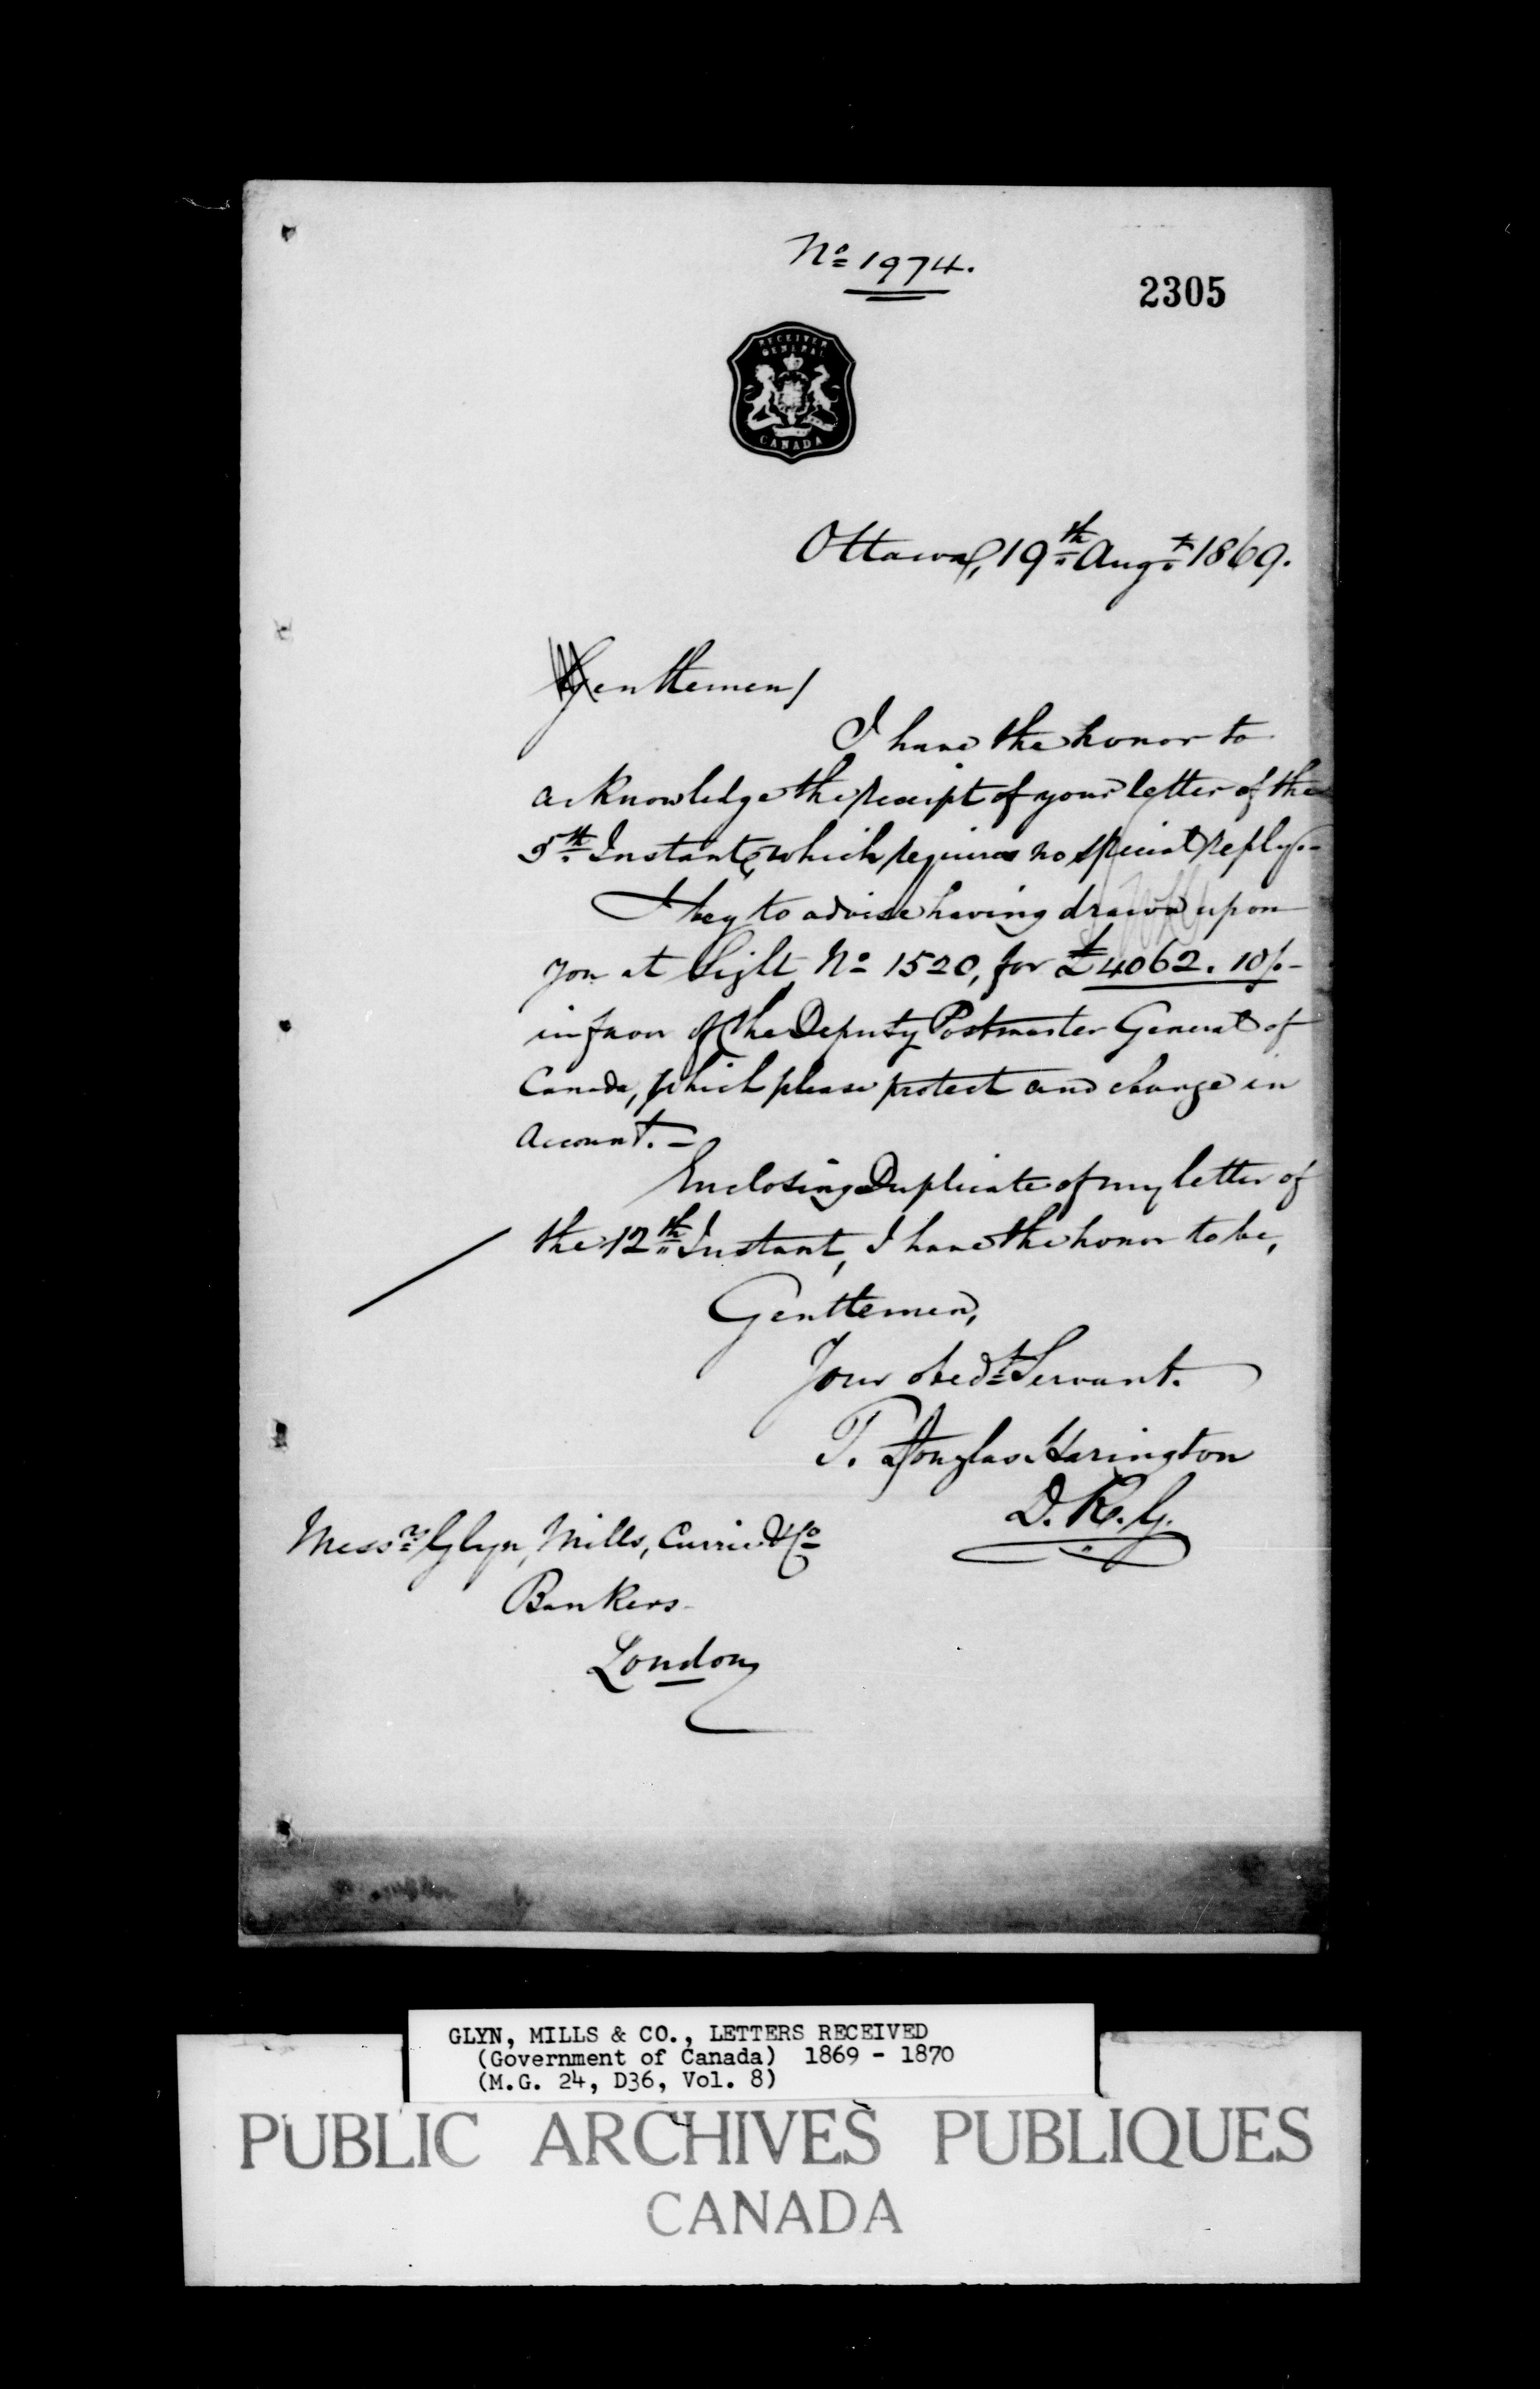 No 1974.
2305
RECEIVER
GENERAL
CANADA
Ottawa, 19th Augt 1869.
Gentlemen/
I have the honor to
acknowledge the receipt of your letter of the
5th Instant, which requires no special reply.-
I beg to advise having drawn upon
you at Sight, No 1520, for £4062. 10/-
in favor of the Deputy Postmaster General of
Canada, which please protect and charge in
account.-
Enclosing Duplicate of my letter of
the 12th Instant, I have the honor to be,
Gentlemen,
Your obedt Servant.
T. Douglas Harington
D. R. G.
Messrs Glyn, Mills, Currie & Co
Bankers
London
GLYN, MILLS & CO., LETTERS RECEIVED
(Government of Canada) 1869 - 1870
(M.G. 24, D36, Vol. 8)
PUBLIC ARCHIVES PUBLIQUES
CANADA